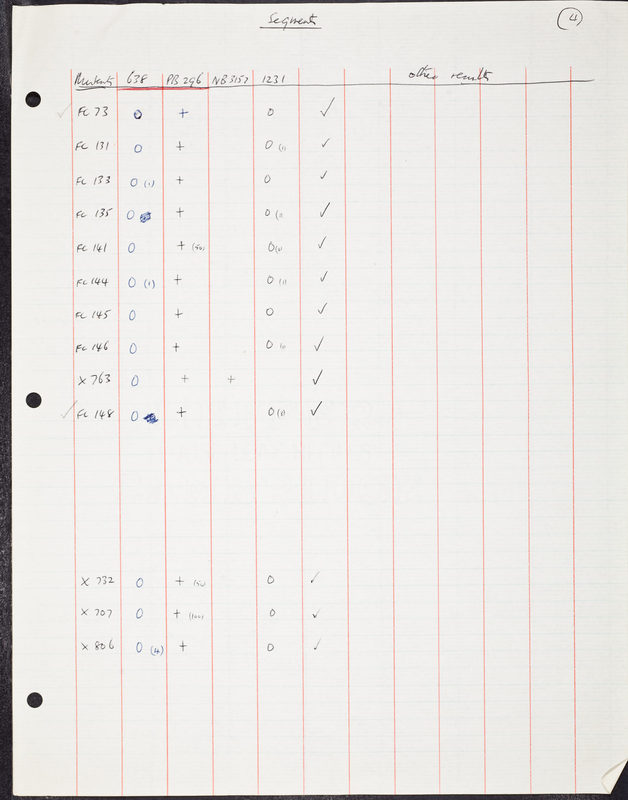 Segments
4
Mutants 638 PB 296 NB 3157 1231 other results
✓ FC 73 0 + 0 ✓
FC 131 0 + 0 (1) ✓
FC 133 0 (1) + 0 ✓
FC 135 0 + 0 (1) ✓
FC 141 0 + (50) 0 (1) ✓
FC 144 0 (1) + 0 (1) ✓
FC 145 0 + 0 ✓
FC 146 0 + 0 ✓
X 763 0 + + ✓
✓ FC 148 0 + 0 (1) ✓
X 732 0 + (50) 0 ✓
X 707 0 + (100) 0 ✓
X 806 0 (4) + 0 ✓